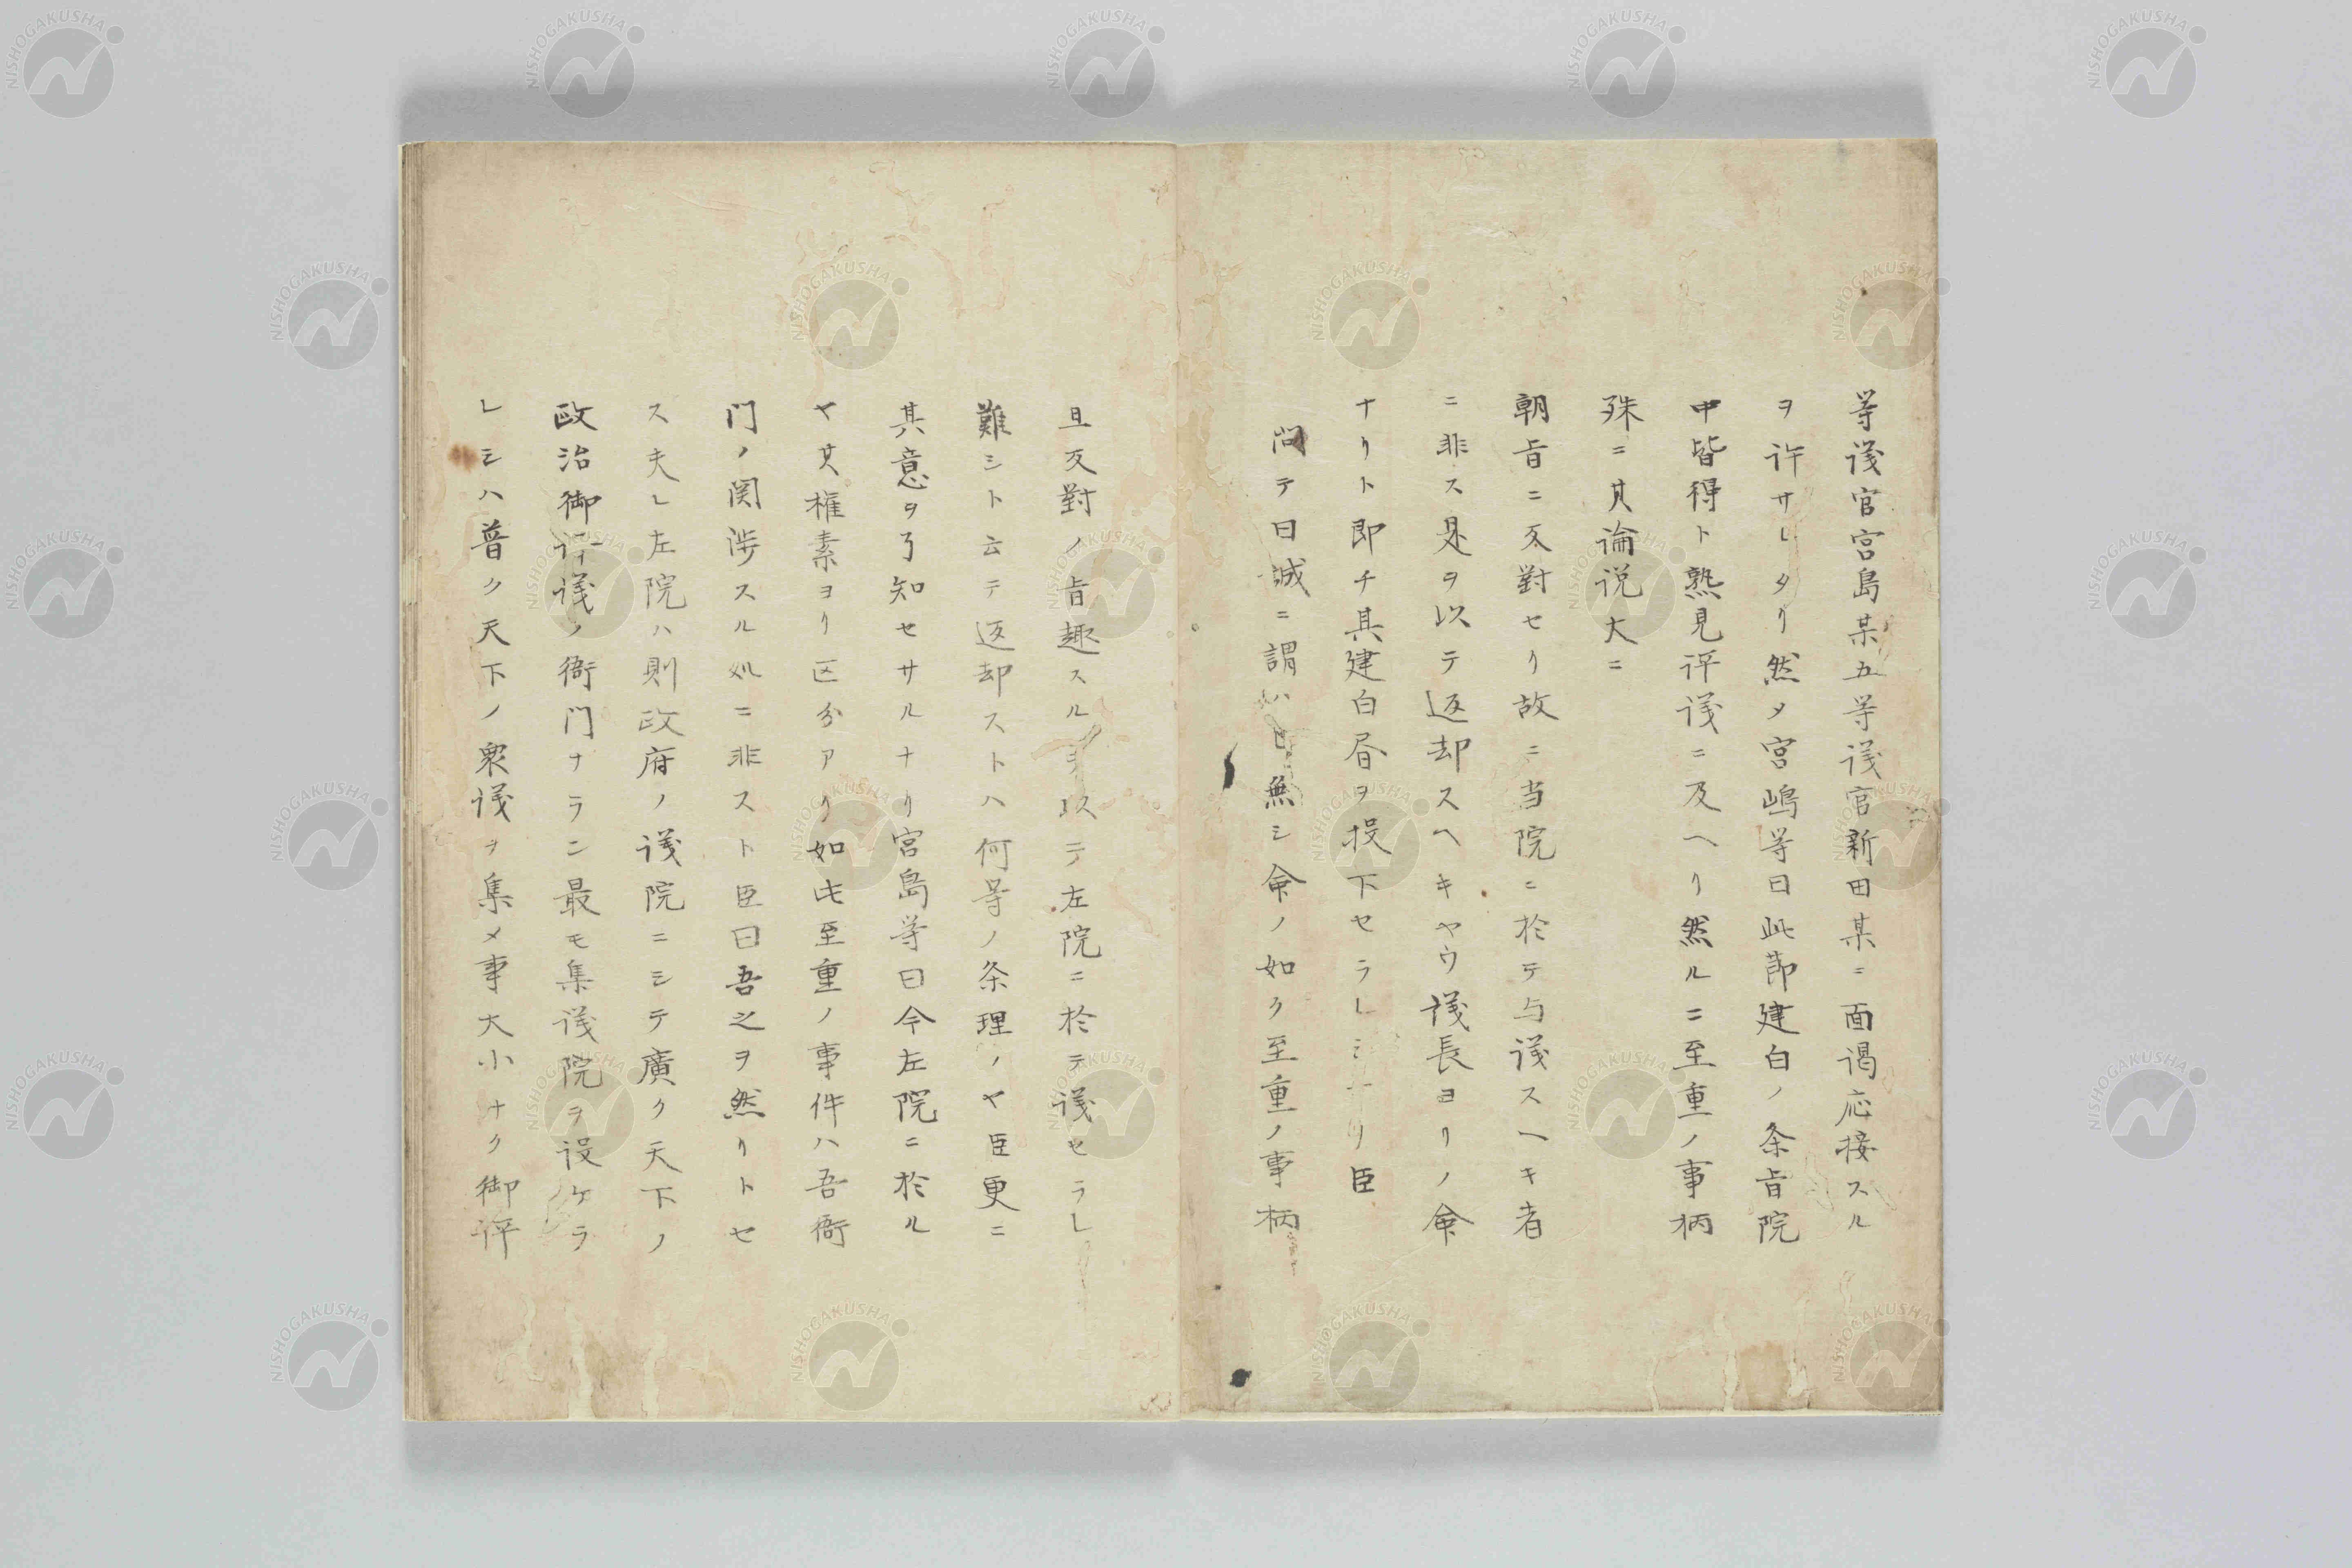 等議官宮島某五等議官新田某ニ面謁応接スル
ヲ許サレタリ然メ宮嶋等曰此莭建白ノ条旨院
中皆得ト熟見评議ニ及ヘリ然ルニ至重ノ事柄
殊ニ其論説大ニ
朝旨ニ反對セリ故ニ当院ニ於テ与議スヘキ者
ニ非ス是ヲ以テ返却スヘキヤウ議長ヨリノ命
ナリト即チ其建白昏ヲ投下セラレ リ臣
問テ曰誠ニ謂ハ 無シ命ノ如ク至重ノ事柄
且反對ノ旨趣スルヲ以テ左院ニ於テ議セラレ
難シト云テ返却ストハ何等ノ条理ノヤ臣更ニ
其意ヲ了知セサルナリ宮島等曰今左院ニ於ル
ヤ其権素ヨリ区分アリ如此至重ノ事件ハ吾衙
门ノ関渉スル処ニ非スト臣曰吾之ヲ然リトセ
ス夫レ左院ハ則政府ノ議院ニシテ廣ク天下ノ
政治御评議ノ衙门ナラン最モ集議院ヲ設ケラ
レシハ普ク天下ノ衆議ヲ集メ事大小ナク御评
NISHOGAKUSHA